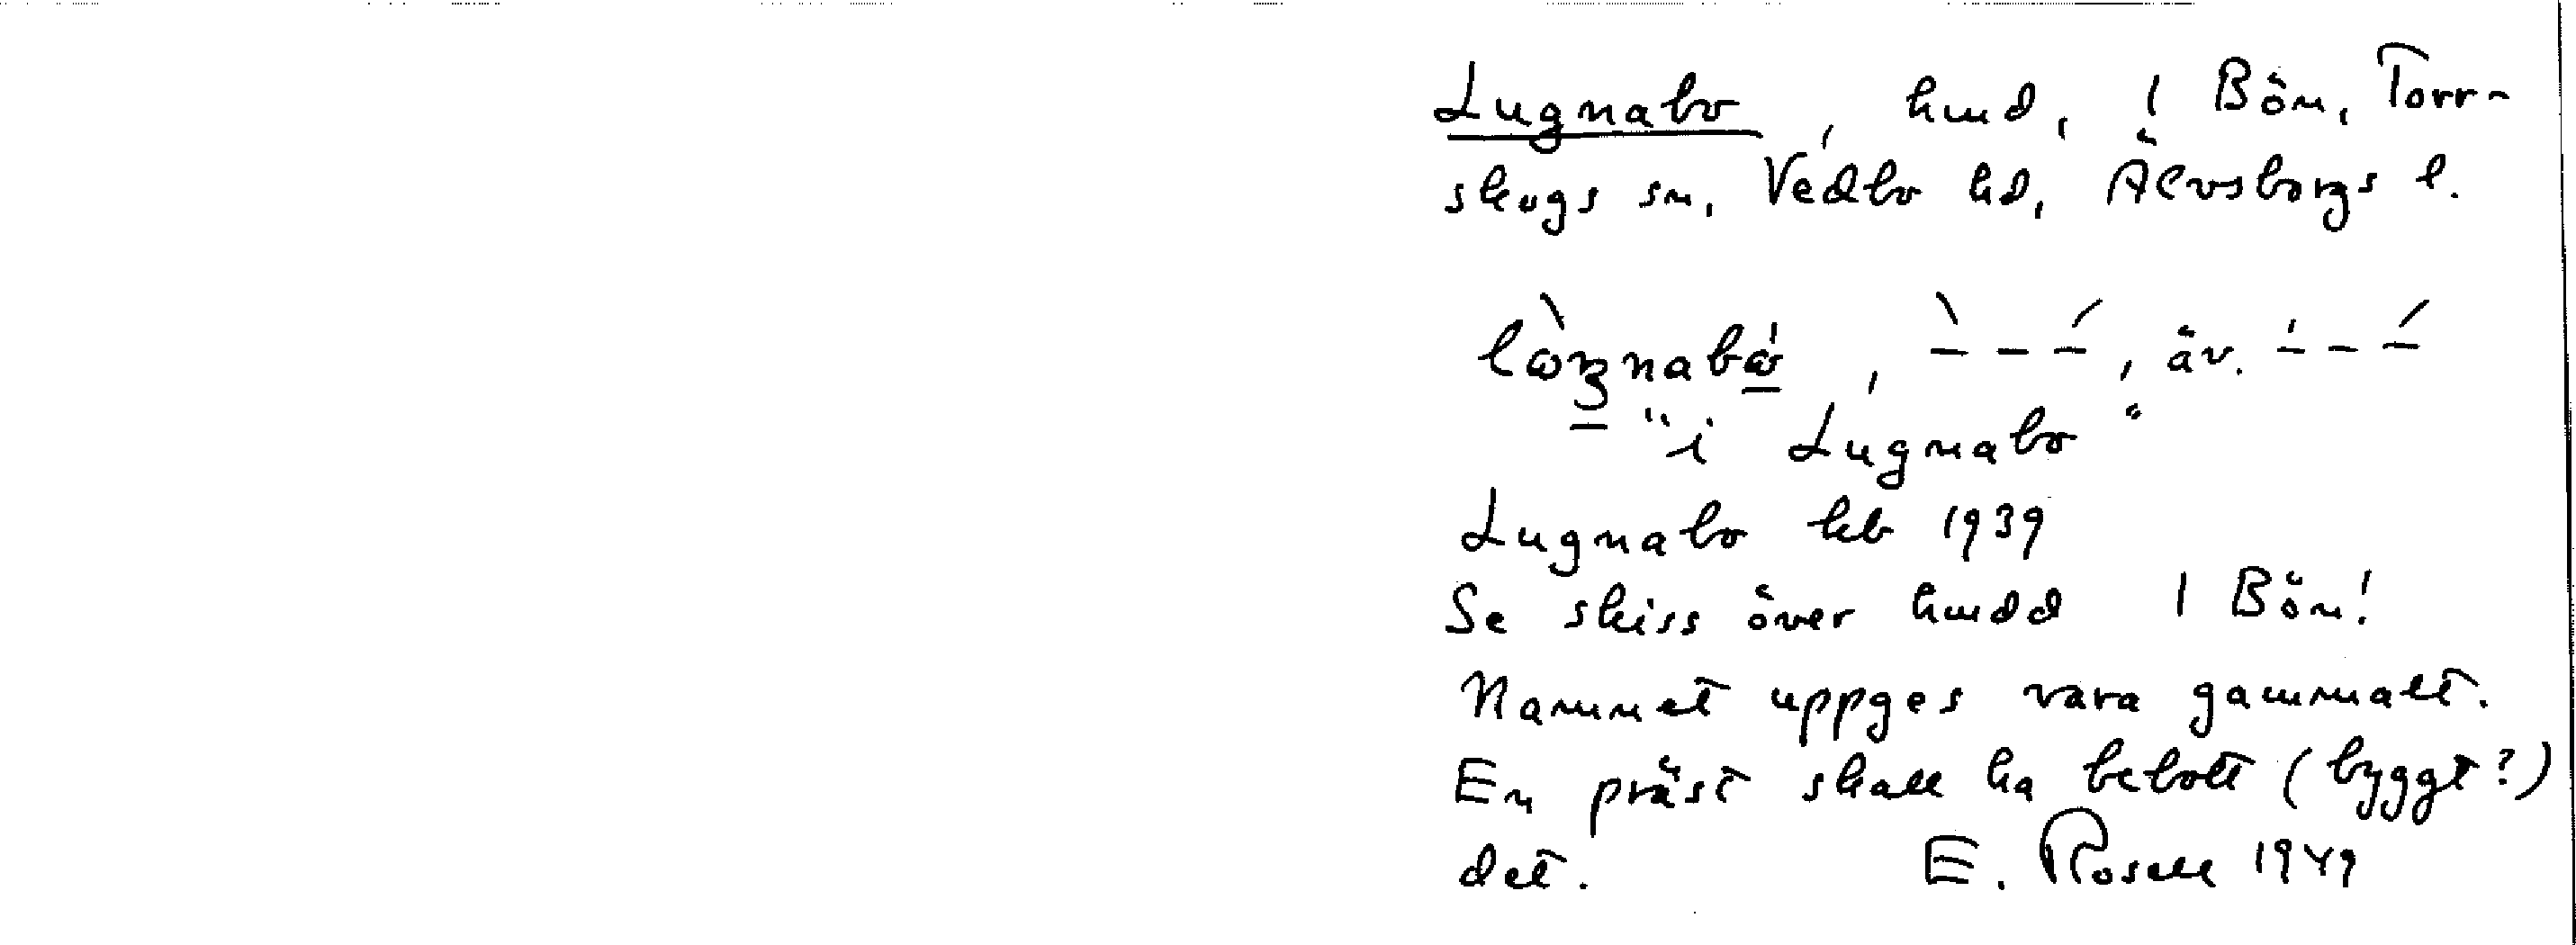 Lugnabo, hmd, 1 Bön, Torr-
skogs sn, Vedbo hd, Älvsborgs l.
"i Lugnabo"
Lugnabo kb 1939
Se skiss över hmdd 1 Bön!
Namnet uppges vara gammalt.
En präst skall ha bebott (byggt?)
det. E. Rosell 1949